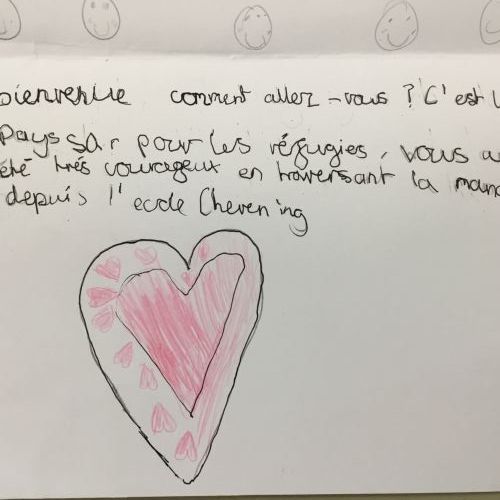 bienvenue comment allez-vous ? C'est
Pays sûr pour les réfugies, vous
été trés courageux en traversant la
depuis l'ecole Chevening